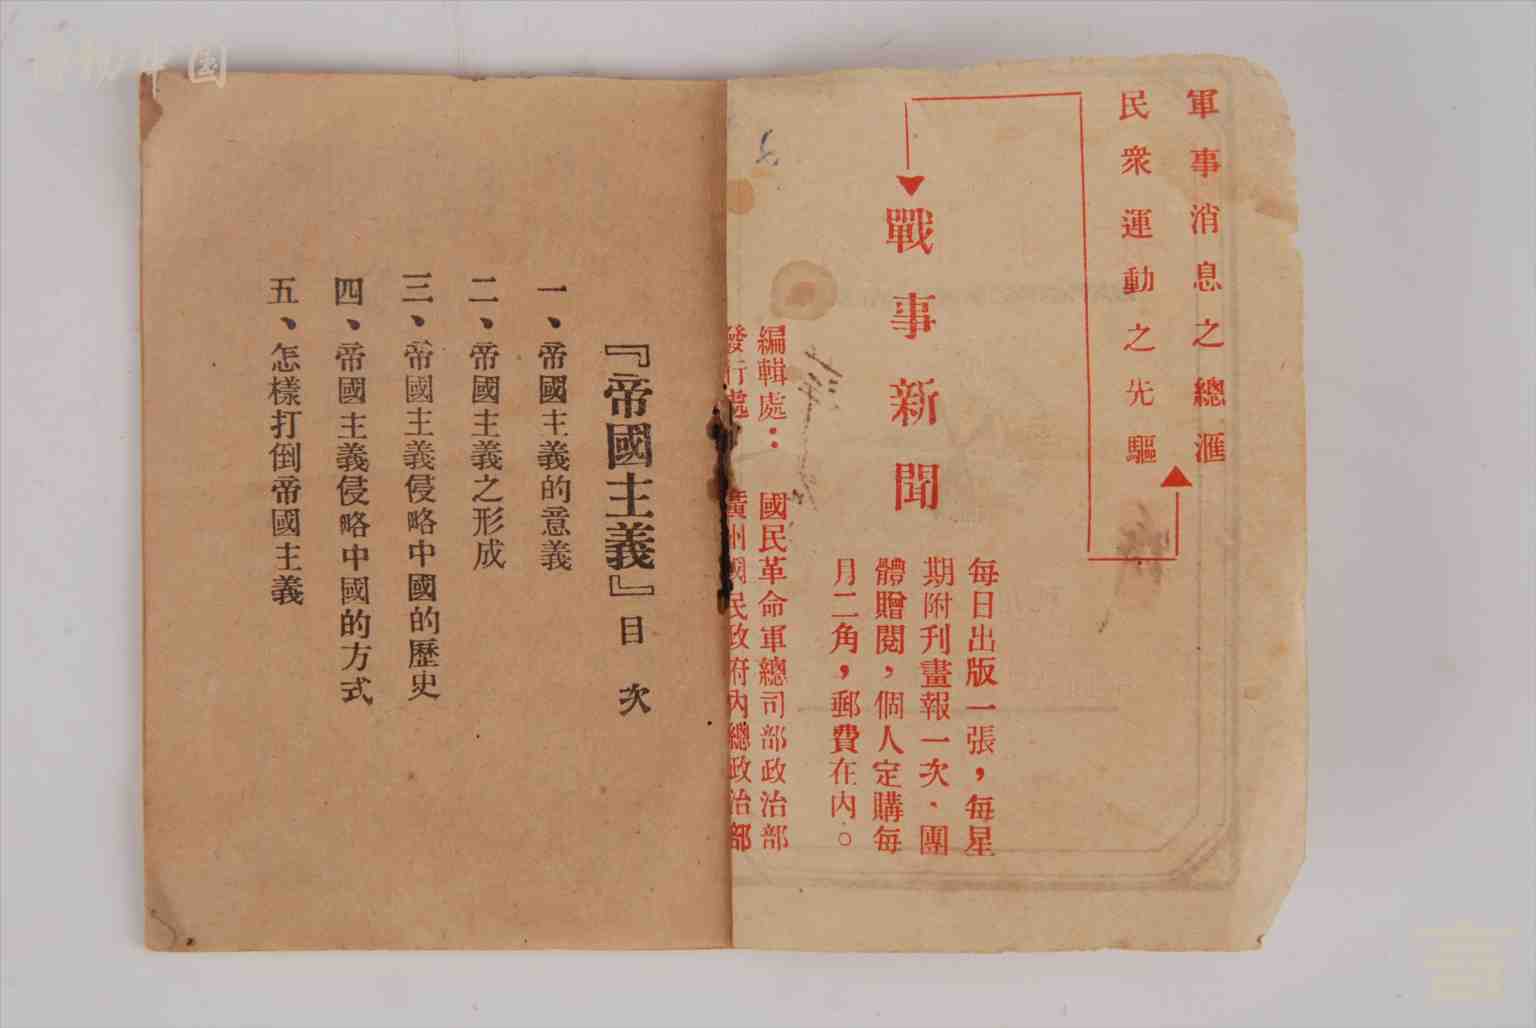 軍事消息之總滙
民衆運動之先驅
戰事新聞
每日出版一張，每星
期附刊畫報一次、團
體贈閱，個人定購每
月二角，郵費在內。
編輯處：國民革命軍總司部政治部
發行處 廣州國民政府內總政治部
『帝國主義』目次
一、帝國主義的意義
二、帝國主義之形成
三、帝國主義侵略中國的歷史
四、帝國主義侵略中國的方式
五、怎樣打倒帝國主義